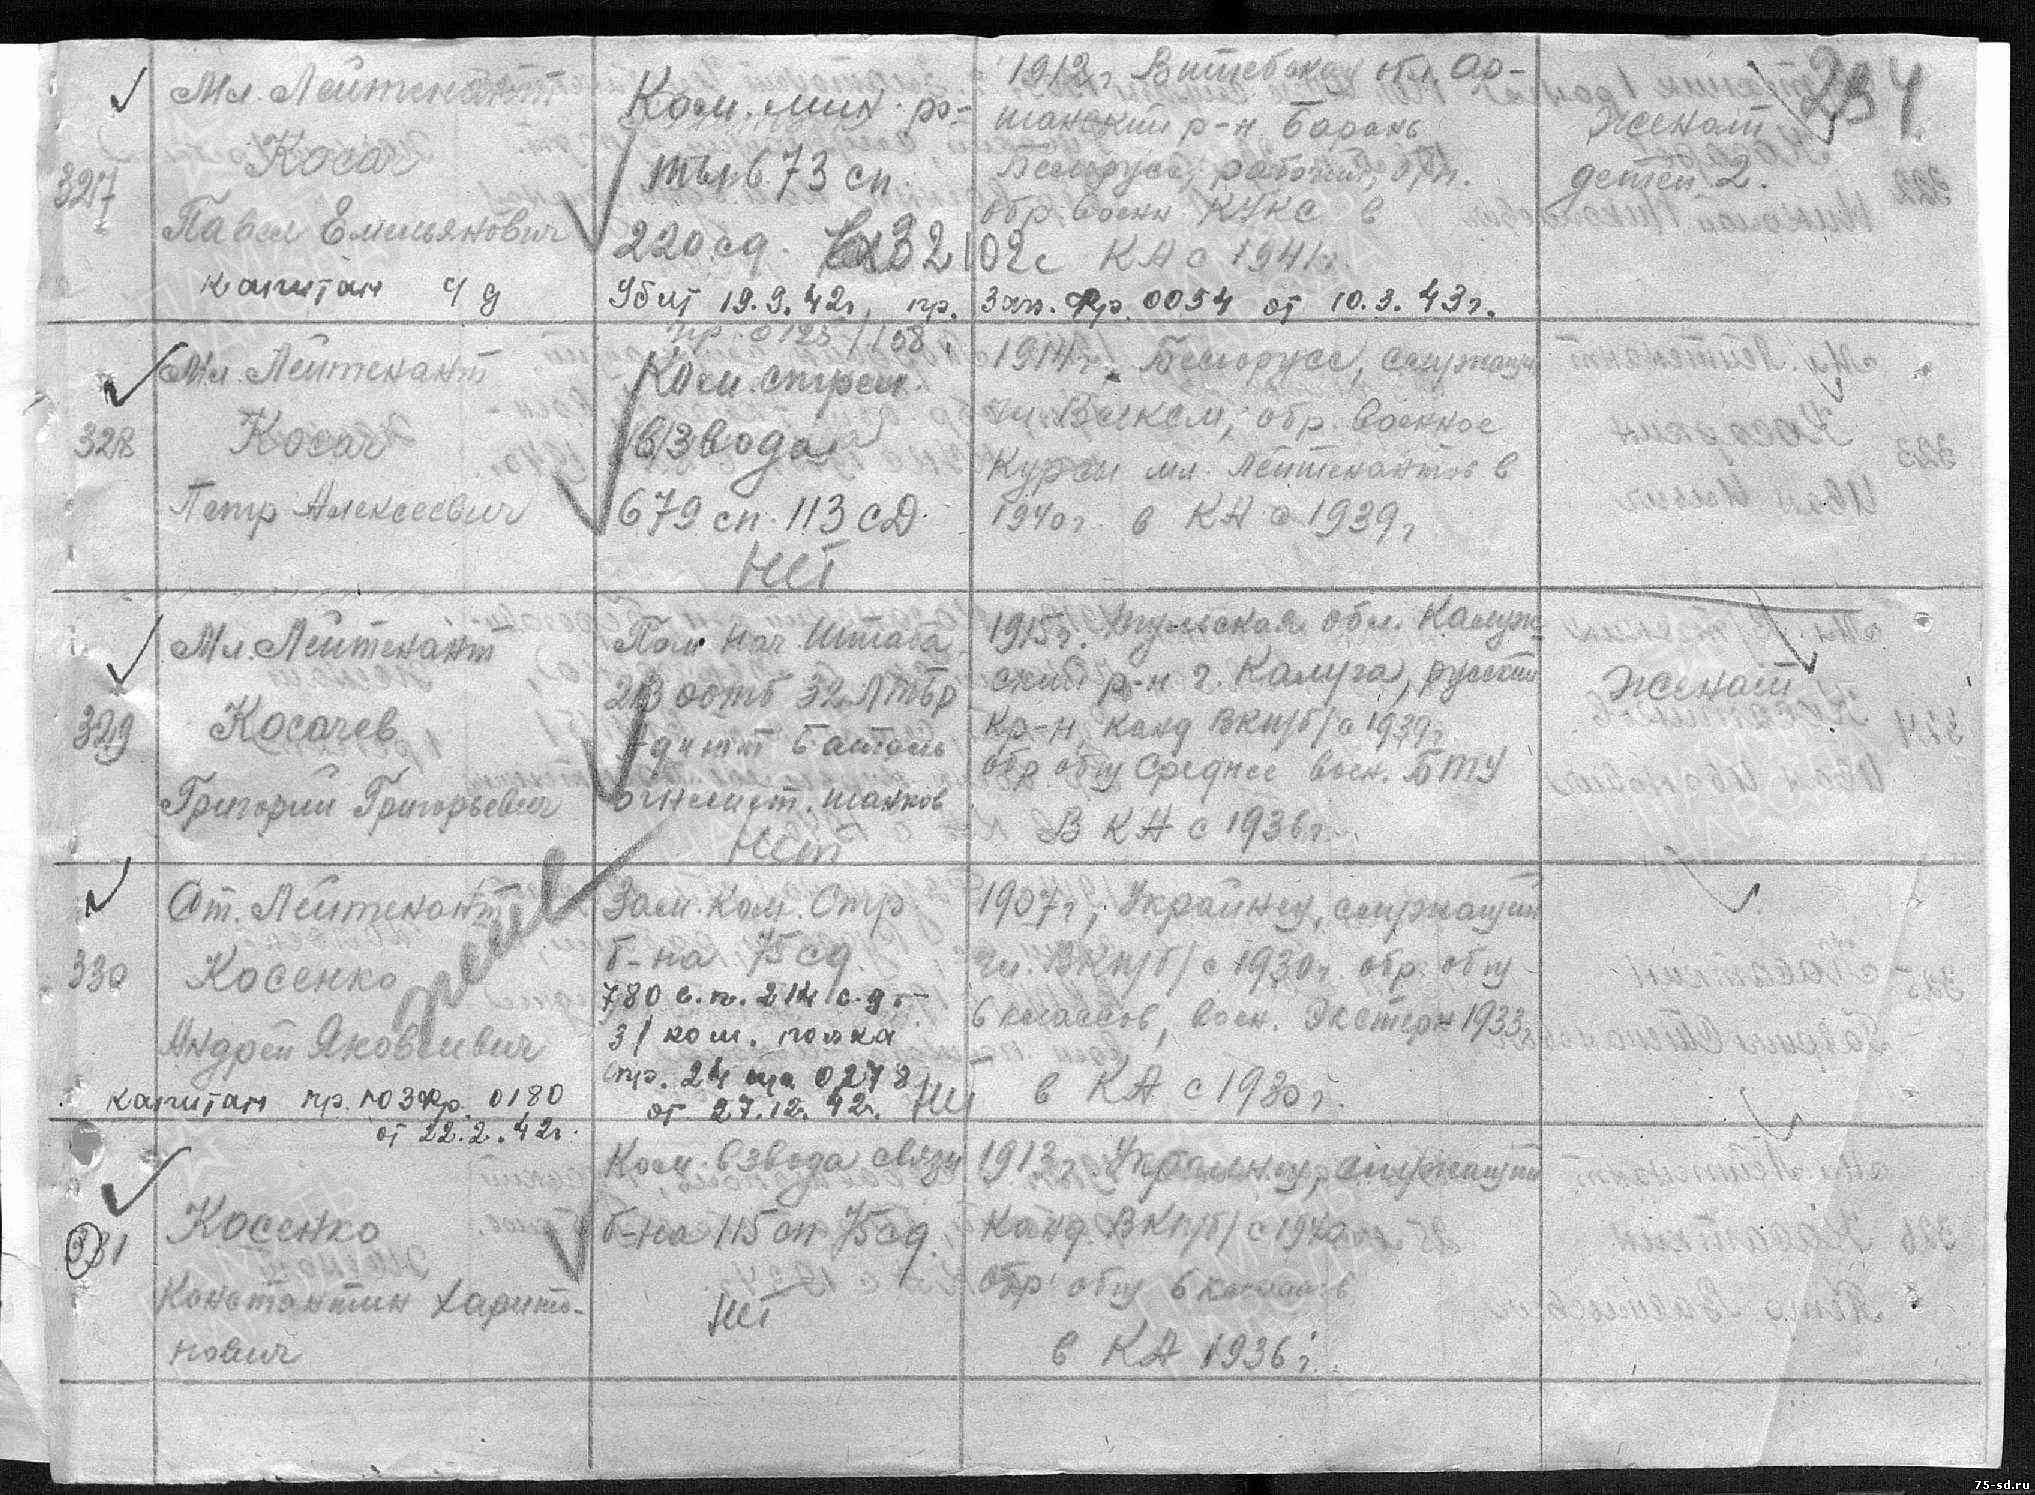 234
327
Мл. Лейтенант
Косач
Павел Емельянович
капитан
Ком. мин. ро-
ты 673 сп.
220 сд.
Убит 19.9.42г, пр.
1912г Витебская обл. Ор-
шанский р-н Барань
Белорусс, рабочий,
обр. воен КУКС в
КА с 1941г.
Зап. Фр. 0054 от 10.3.43г.
Женат
детей 2.
328
Мл. Лейтенант
Косач
Петр Алексеевич
Ком. стрел.
взвода
679 сп. 113 СД
нет
1914г. Белорусс, служащ
чл. ВЛКСМ, обр. военное
Курсы мл. лейтенантов в
1940г. в КА с 1939г
329
Мл. Лейтенант
Косачев
Григорий Григорьевич
Пом нач. Штаба
оотб 32 Лтбр
огнемет. танков
нет
1915г. Тульская обл. Калуж-
ский р-н г. Калуга, русский
кр-н, канд ВКП/б/ с 1939г.
обр общ Среднее воен. БТУ
В КА с 1936г.
Женат
330
Ст. Лейтенант
Косенко
Андрей Яковлевич
капитан пр. ЮЗФр. 0180
от 22.2.42г.
Зам. Ком. Стр.
б-на 75 сд.
780 с.п. 214 с.д –
3/ ком. полка
пр. 24 0278
от 27.12.42г. нет
1907г, Украинец, служащий
Чл. ВКП/б/ с 1930г. обр. общ
6 классов, воен. Экстерн 1933г
в КА с 1930г.
331
Косенко
Константин Харито-
нович
Ком. взвода связи
б-на 115 сп 75 сд.
нет
1913г Украинец, служащий
Канд. ВКП/б/ с 1940
обр. общ 6 классов
в КА 1936г.
75-sd.ru